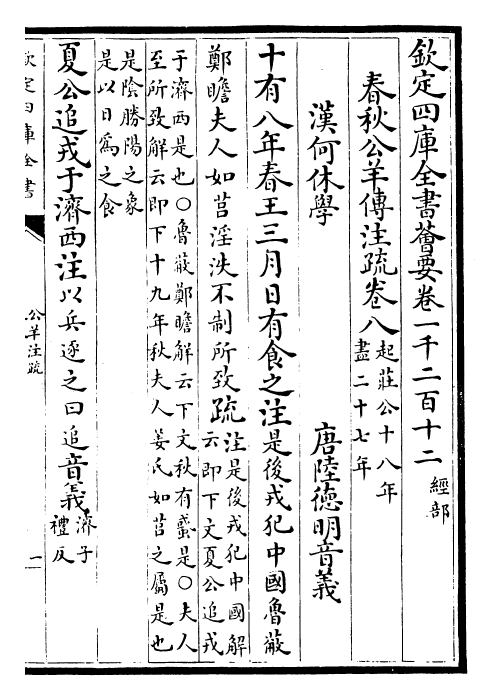 欽定四庫全書薈要卷一千二百十二 經部
春秋公羊傳注疏卷八 起莊公十八年
盡二十七年
漢何休學 唐陸德明音義
十有八年春王三月日有食之注是後戎犯中國魯蔽
鄭瞻夫人如莒淫泆不制所致疏注是後戎犯中國解
云即下文夏公追戎
于濟西是也○魯蔽鄭瞻解云下文秋有蜮是○夫人
至所致解云即下十九年秋夫人姜氏如莒之屬是也
是陰勝陽之象
是以日為之食
夏公追戎于濟西注以兵逐之曰追音義濟子
禮反
欽定四庫全書
公羊注疏
一